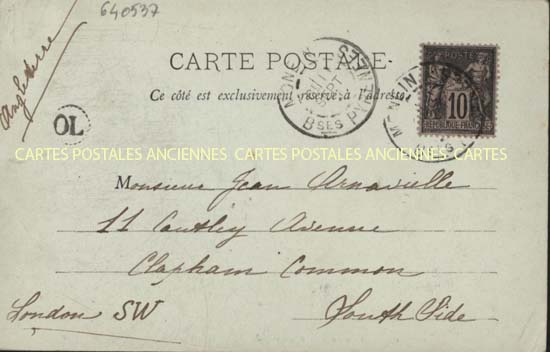 640537
Angleterre
CARTE POSTALE
Ce côté est exclusivement réservé à l'adresse
OL
BSES PYRÉNÉES
10
RÉPUBLIQUE FRANÇAISE
CARTES POSTALES ANCIENNES CARTES POSTALES ANCIENNES CARTES POSTALES ANCIENNES
Monsieur Jean Arnavielle
11 Cautley Avenue
Clapham Common
London SW South Side